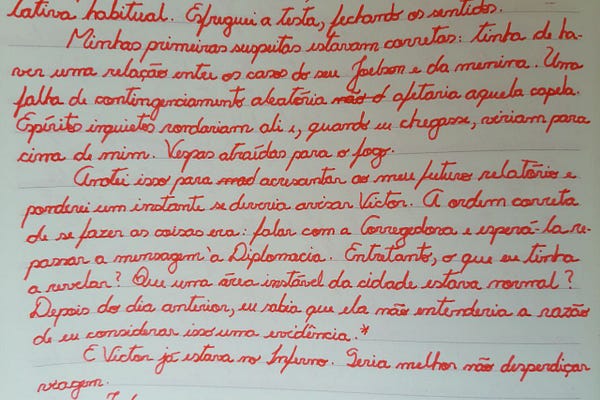 lativa habitual. Esfreguei a testa, fechando os sentidos.
Minhas primeiras suspeitas estavam corretas: tinha de ha-
ver uma relação entre os casos do seu Joelson e da menina. Uma
falha de contingenciamento aleatória não d afetaria aquela capela.
Espíritos inquietos rondariam ali e, quando eu chegasse, viriam para
cima de mim. Vespas atraídas para o fogo.
Anotei isso para mod acrescentar ao meu futuro relatório e
ponderei um instante se deveria avisar Victor. A ordem correta
de se fazer as coisas era: falar com a Corregedora e esperá-la re-
passar a mensagem à Diplomacia. Entretanto, o que eu tinha
a revelar? Que uma área instável da cidade estava normal?
Depois do dia anterior, eu sabia que ela não entenderia a razão
de eu considerar isso uma evidência.*
E Victor já estava no Inferno. Seria melhor não desperdiçar
viagem.